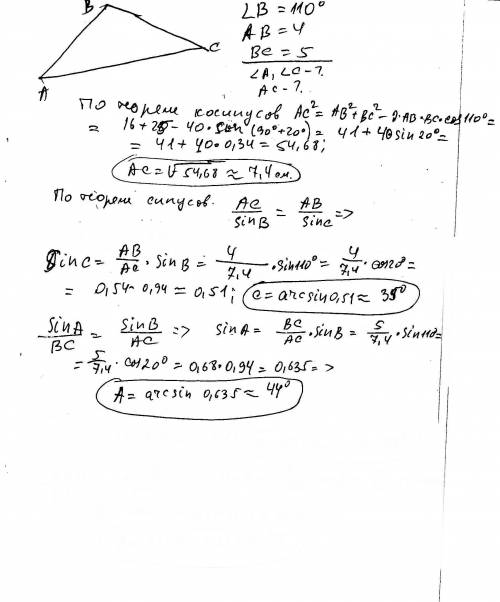 B
C
A
∠B = 110°
AB = 4
BC = 5
∠A, ∠C - ?
AC - ?
По теореме косинусов AC² = AB² + BC² - 2·AB·BC·cos110° =
= 16 + 25 - 40· (90°+20°) = 41 + 40 sin 20° =
= 41 + 40·0,34 = 54,68;
AC = √54,68 ≈ 7,4 см.
По теореме синусов. AC/sinB = AB/sinC =>
sinC = AB/AC · sinB = 4/7,4 · sin110° = 4/7,4 · cos20° =
= 0,54·0,94 = 0,51; C = arcsin0,51 ≈ 30°
sinA/BC = sinB/AC => sinA = BC/AC · sinB = 5/7,4 · sin110 =
= 5/7,4 · cos20° = 0,68·0,94 = 0,635 = >
A = arcsin 0,635 ≈ 44°